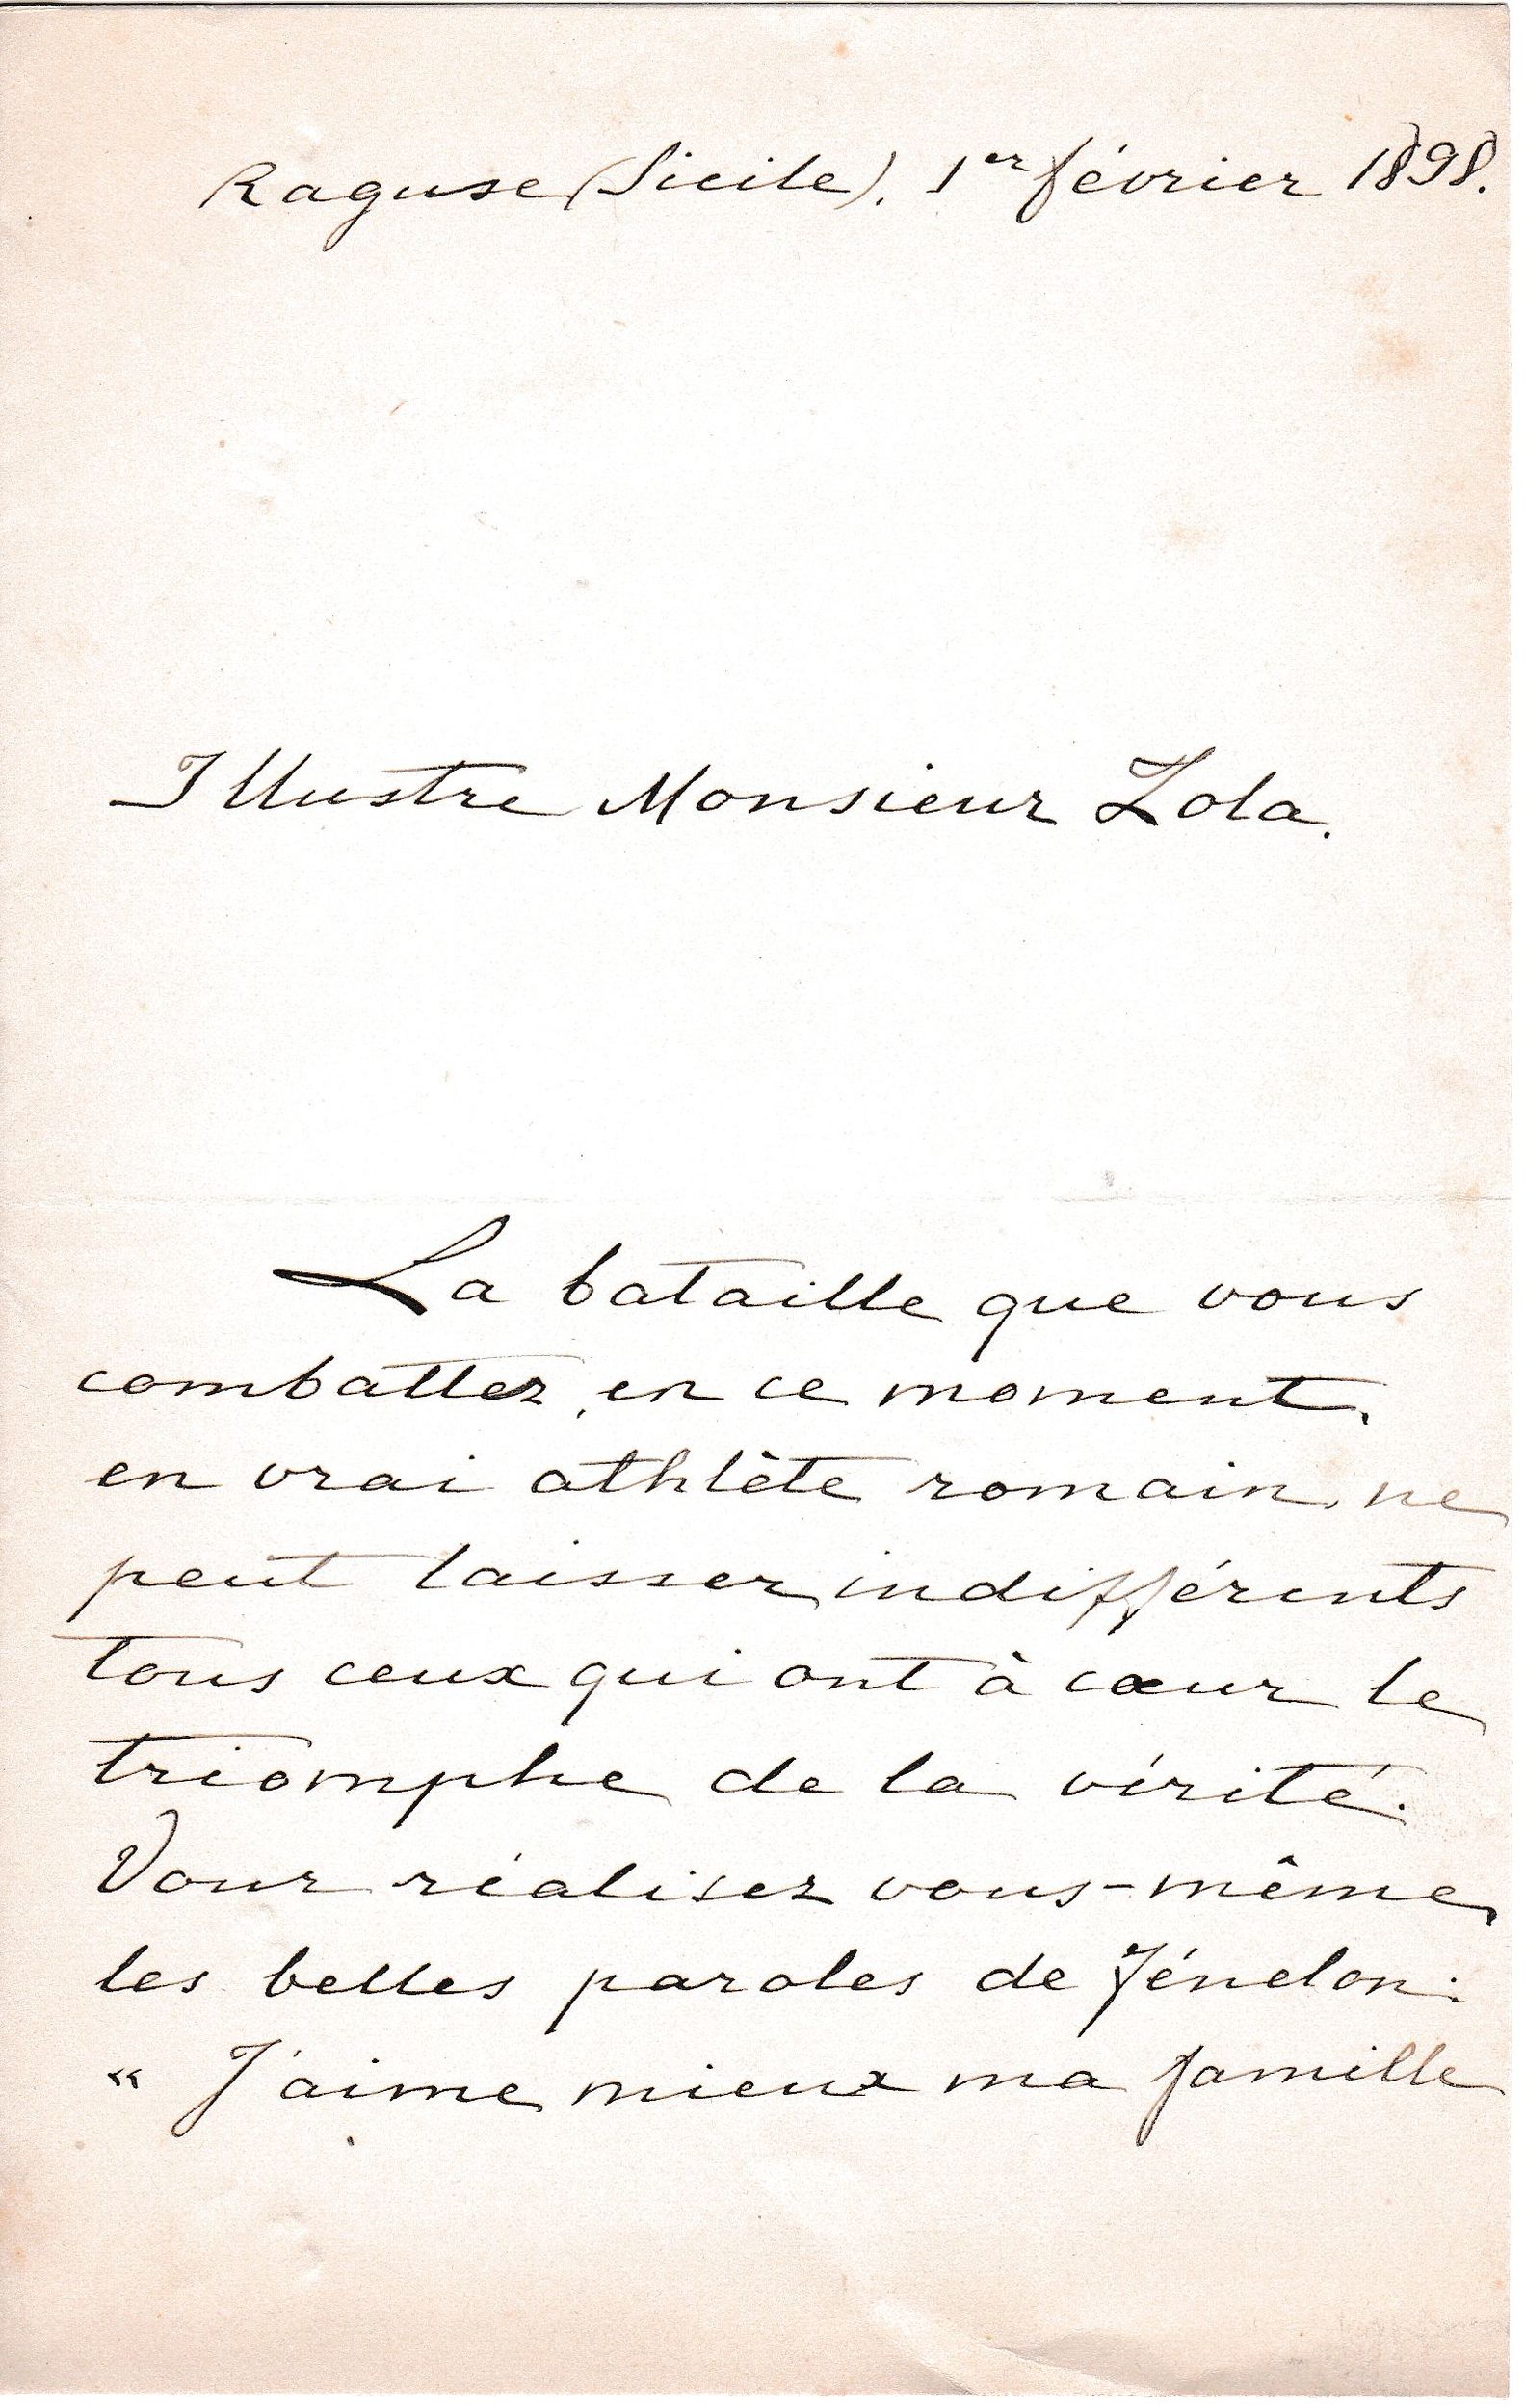 Raguse (Sicile), 1er février 1898.
Illustre Monsieur Zola.
La bataille que vous
combattez, en ce moment,
en vrai athlète romain, ne
peut laisser indifférents
tous ceux qui ont à cœur le
triomphe de la vérité.
Vous réalisez vous-même,
les belles paroles de Fénelon:
« J'aime mieux ma famille